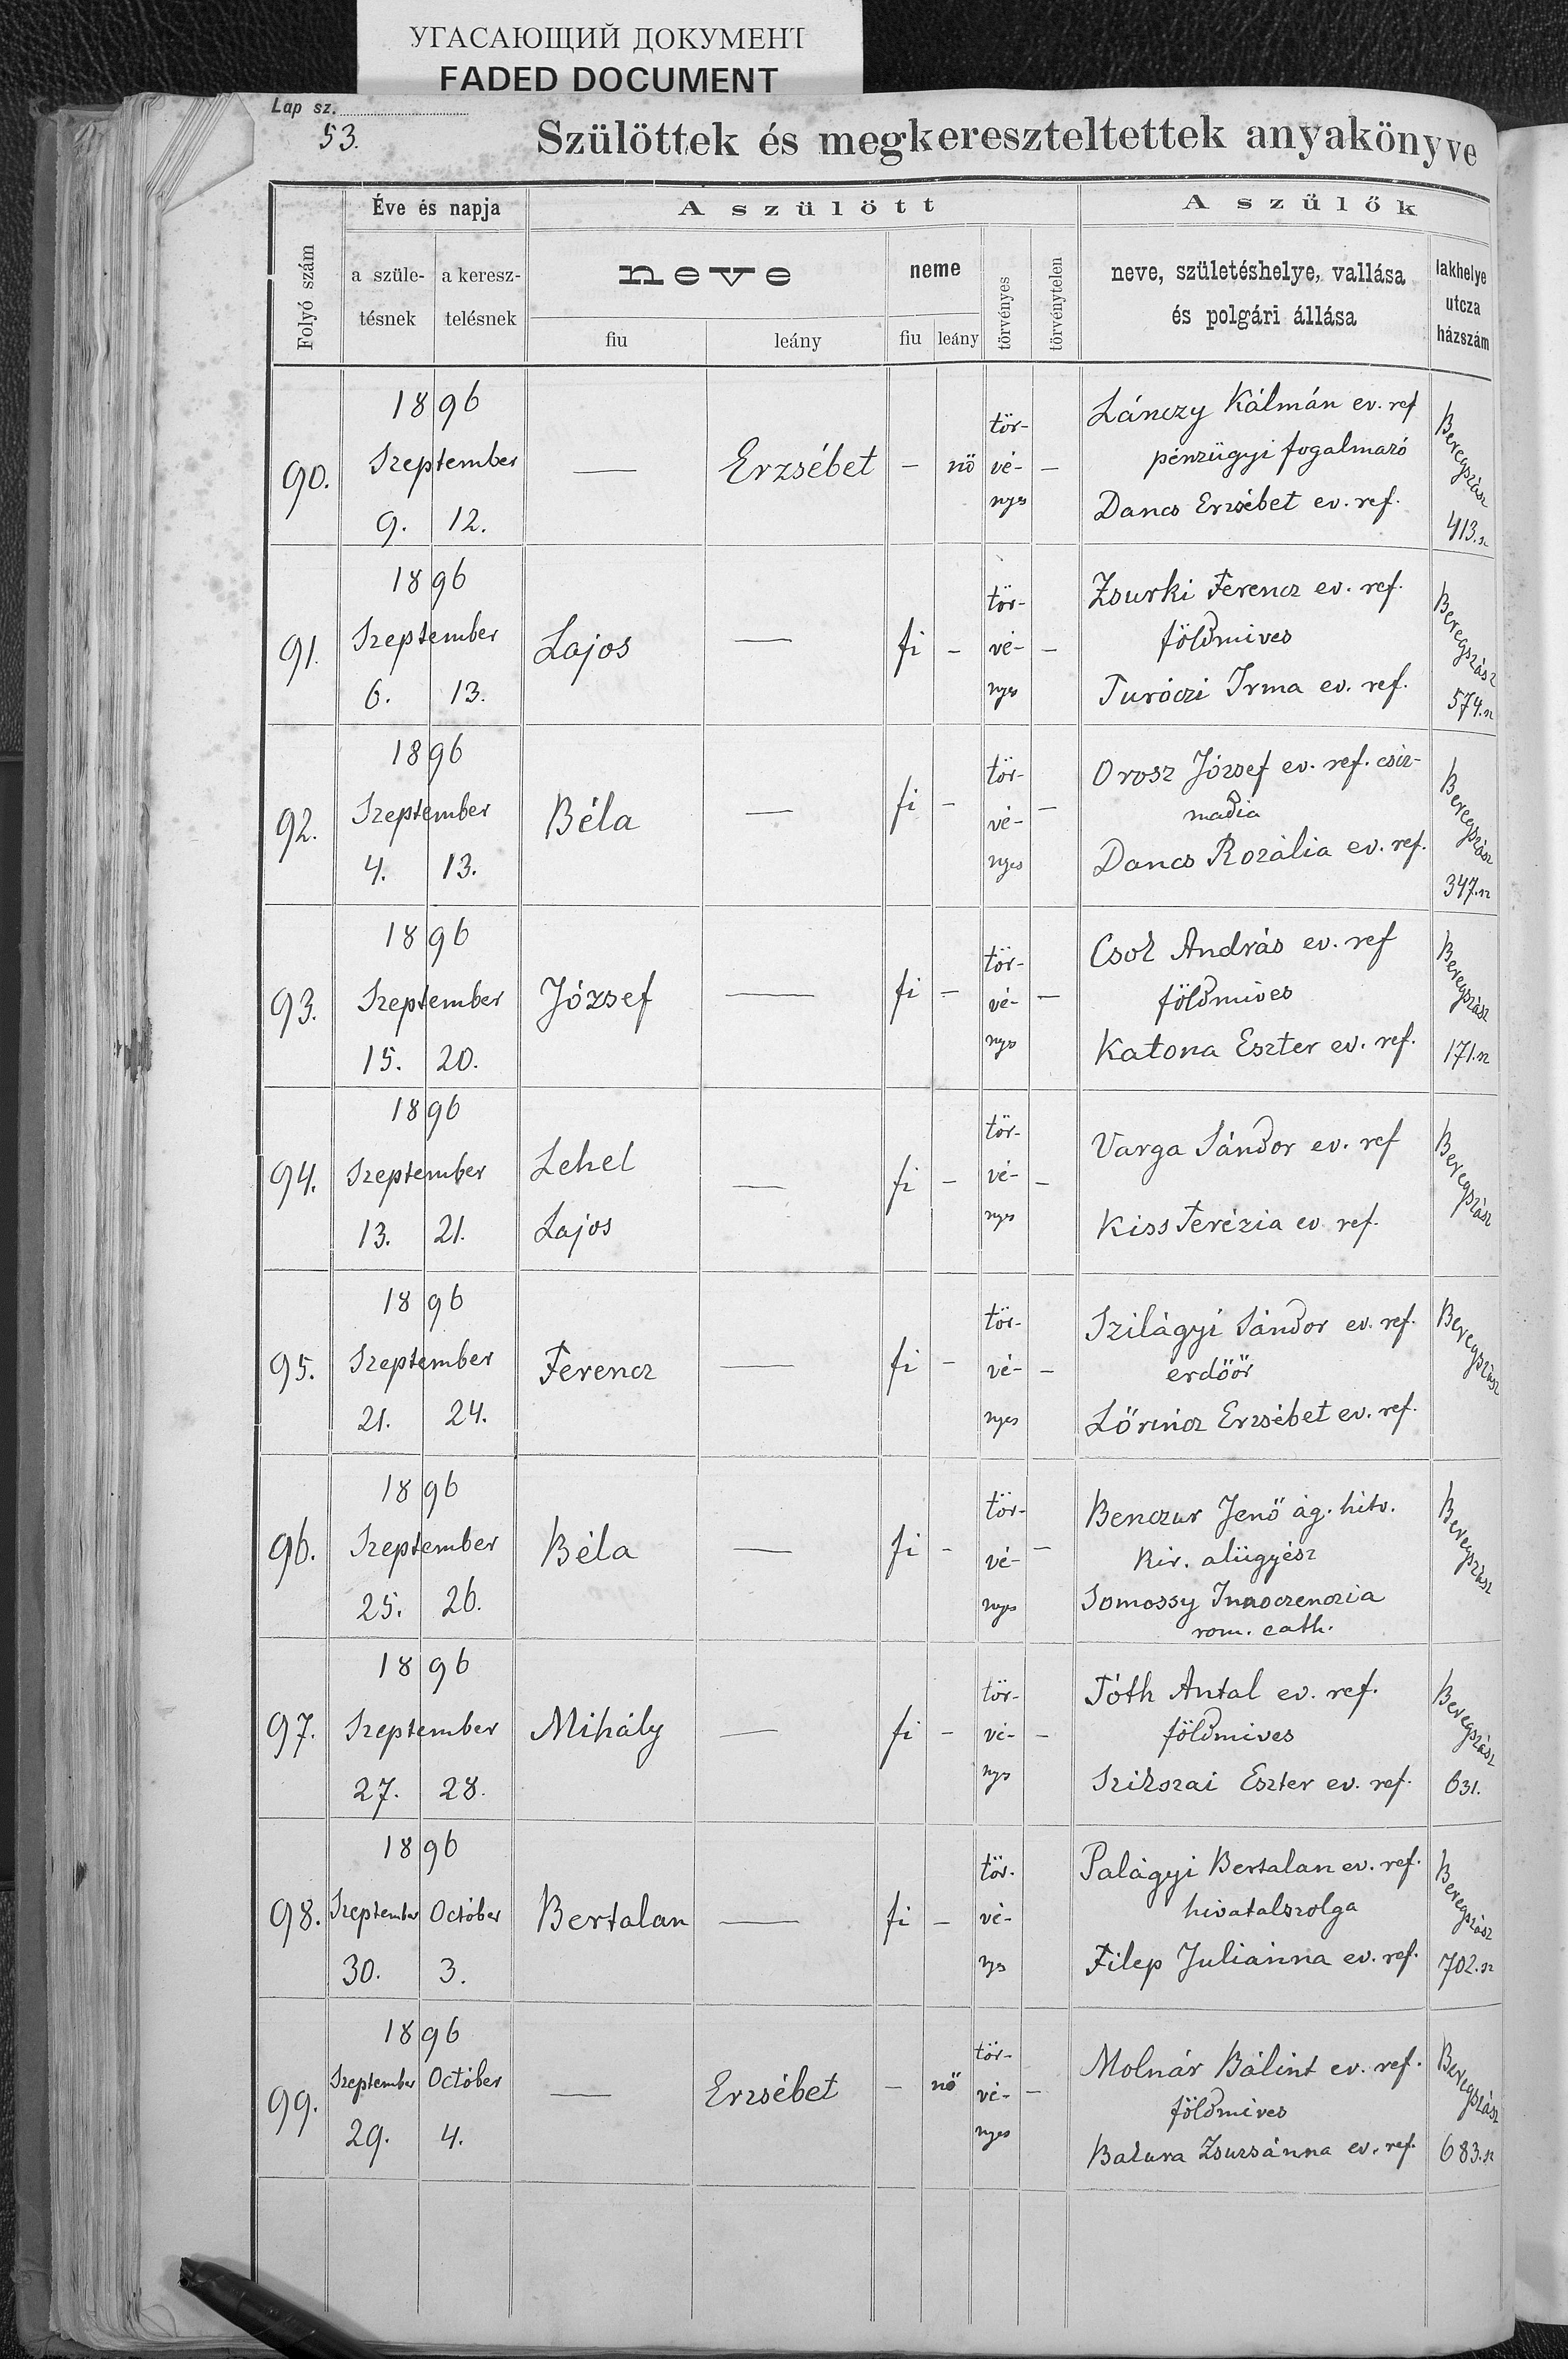 УГАСАЮЩИЙ ДОКУМЕНТ
FADED DOCUMENT
Lap sz.
53.
Szülöttek és megkereszteltettek anyakönyve
Folyó szám
Éve és napja
a szüle-
tésnek
a keresz-
telésnek
A szülött
neve
fiu
leány
neme
fiu leány
törvényes
törvénytelen
A szülők
neve, születéshelye, vallása
és polgári állása
lakhelye
utcza
házszám
90.
1896
Szeptember
9. 12.
—
Erzsébet
–
nö
tör-
vé-
nyes
–
Lánczy Kálmán ev. ref
pénzügyi fogalmazó
Dancs Erzsébet ev. ref.
Beregszász
413. sz
91.
1896
Szeptember
6. 13.
Lajos
—
fi
–
tör-
vé-
nyes
–
Zsurki Ferencz ev. ref.
földmives
Turóczi Irma ev. ref.
Beregszász
574. sz
92.
1896
Szeptember
4. 13.
Béla
—
fi
–
tör-
vé-
nyes
–
Orosz József ev. ref. csiz-
madia
Dancs Rozália ev. ref.
Beregszász
347. sz
93.
1896
Szeptember
15. 20.
József
—
fi
–
tör-
vé-
nyes
–
Csok András ev. ref
földmives
Katona Eszter ev. ref.
Beregszász
171. sz
94.
1896
Szeptember
13. 21.
Lehel
Lajos
—
fi
–
tör-
vé-
nyes
–
Varga Sándor ev. ref
Kiss Terézia ev ref.
Beregszász
95.
1896
Szeptember
21. 24.
Ferencz
—
fi
–
tör-
vé-
nyes
–
Szilágyi Sándor ev. ref.
erdőőr
Lőrincz Erzsébet ev. ref.
Beregszász
96.
1896
Szeptember
25. 26.
Béla
—
fi
–
tör-
vé-
nyes
–
Benczur Jenő ág. hitv.
kir. alügyész
Somossy Innoczenczia
rom. cath.
Beregszász
97.
1896
Szeptember
27. 28.
Mihály
—
fi
–
tör-
vé-
nys
–
Tóth Antal ev. ref.
földmives
Szikszai Eszter ev. ref.
Beregszász
631.
98.
1896
Szeptember October
30. 3.
Bertalan
—
fi
–
tör-
vé-
nys
Palágyi Bertalan ev. ref.
hivatalszolga
Filep Juliánna ev. ref.
Beregszász
702. sz
99.
1896
Szeptember October
29. 4.
—
Erzsébet
–
nő
tör-
vé-
nyes
–
Molnár Bálint ev. ref.
földmives
Bakura Zsuzsánna ev. ref.
Beregszász
683. sz